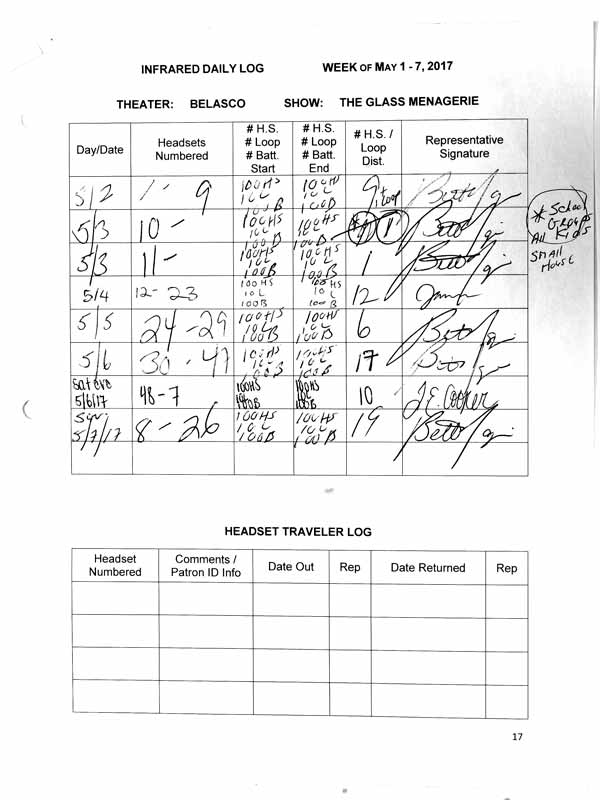 INFRARED DAILY LOG WEEK OF MAY 1 - 7, 2017
THEATER: BELASCO SHOW: THE GLASS MENAGERIE
Day/Date
Headsets
Numbered
# H.S.
# Loop
# Batt.
Start
# H.S.
# Loop
# Batt.
End
# H.S. /
Loop
Dist.
Representative
Signature
5/2
1 - 9
100HS
10L
100B
100HS
10L
100B
9 1 Loop
5/3
10 -
100HS
10L
100B
100HS
10L
100B
1
* School
Groups
All Kids
Small
House
5/3
11 -
100HS
10L
100B
100HS
10L
100B
1
5/4
12 - 23
100HS
10L
100B
100HS
10L
100B
12
5/5
24 - 29
100HS
10L
100B
100HS
10L
100B
6
5/6
30 - 47
100HS
10L
100B
100HS
10L
100B
17
Sat eve
5/6/17
48 - 7
100HS
100B
100HS
100B
10
J.E. Cooper
5/7/17
8 - 26
100HS
10L
100B
100HS
10L
100B
19
HEADSET TRAVELER LOG
Headset
Numbered
Comments /
Patron ID Info
Date Out
Rep
Date Returned
Rep
17